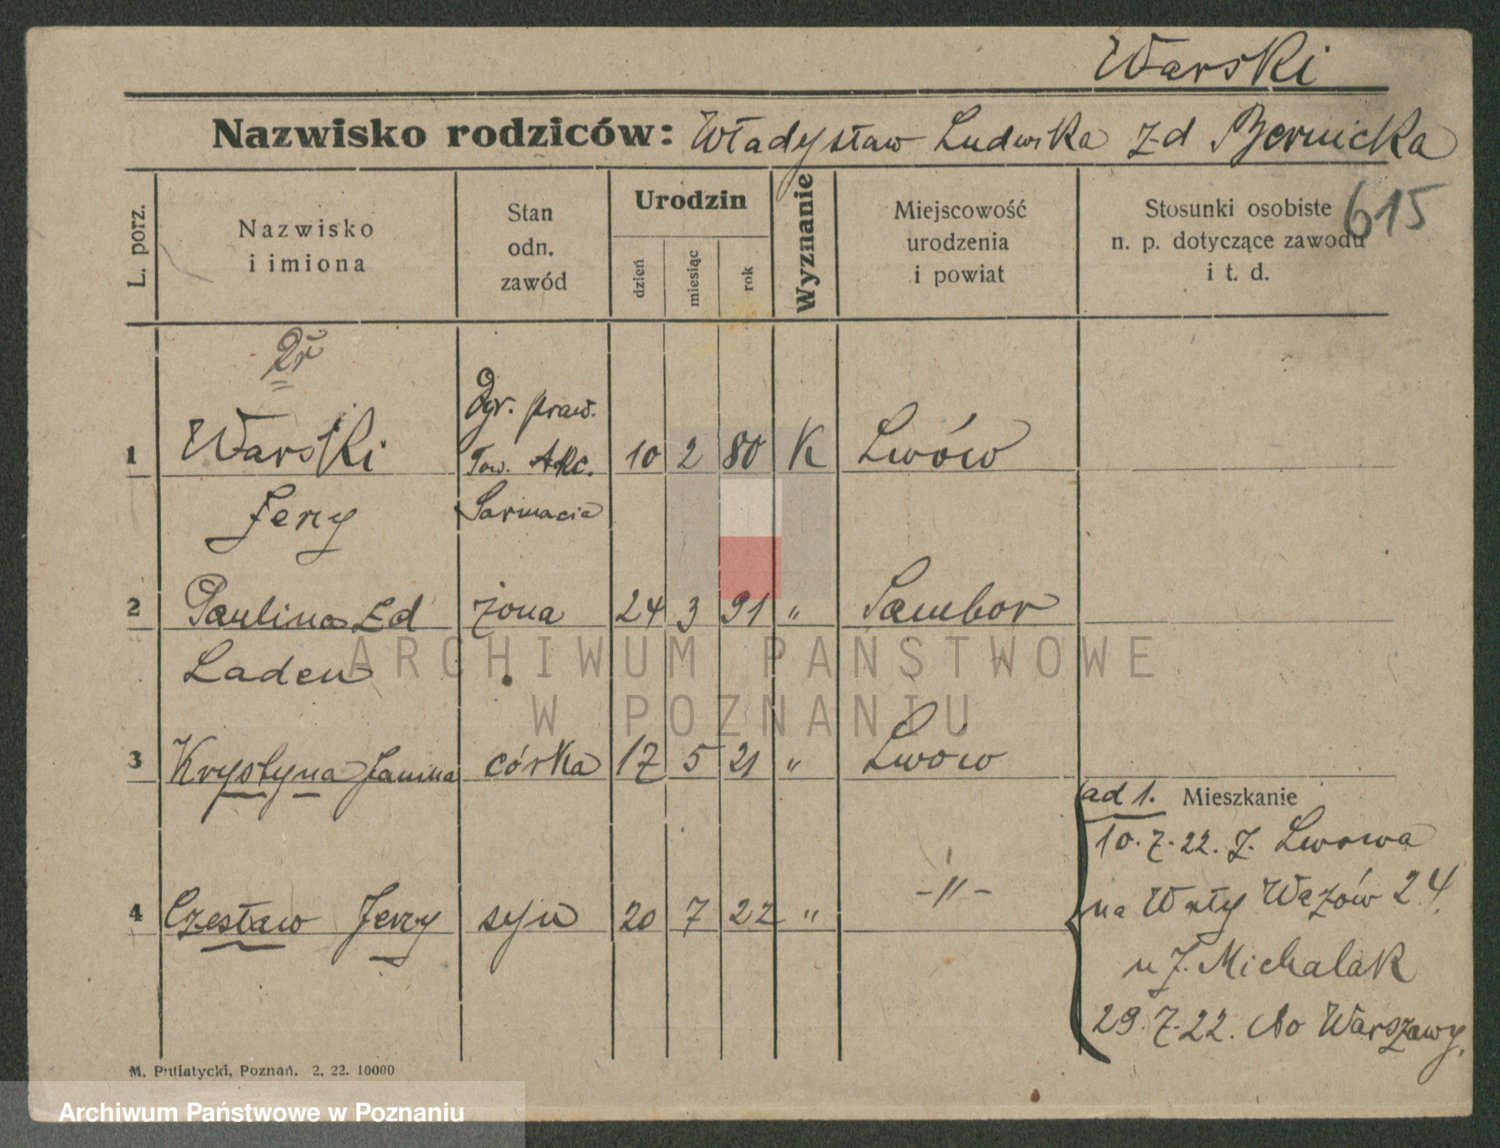 Warski
Nazwisko rodziców: Władysław Ludwika z d Bernicka
615
L. porz.
Nazwisko
i imiona
Stan
odn.
zawód
Urodzin
dzień
miesiąc
rok
Wyznanie
Miejscowość
urodzenia
i powiat
Stosunki osobiste
n. p. dotyczące zawodu
i t. d.
Dr
Dyr. praw.
1 Warski Tow. Akc. 10 2 80 K Lwów
Jerzy Sarmacia
2 Paulina z d żona 24 3 91 " Sambor
Laden
3 Krystyna Janina córka 17 5 21 " Lwów
ad 1. Mieszkanie
10.7.22. z Lwowa
4 Czesław Jerzy syn 20 7 22 " -"-
na Wały Wazów 24.
u J. Michalak
29.7.22. do Warszawy.
M. Putiatycki, Poznań. 2, 22. 10000
ARCHIWUM PAŃSTWOWE
W POZNANIU
Archiwum Państwowe w Poznaniu